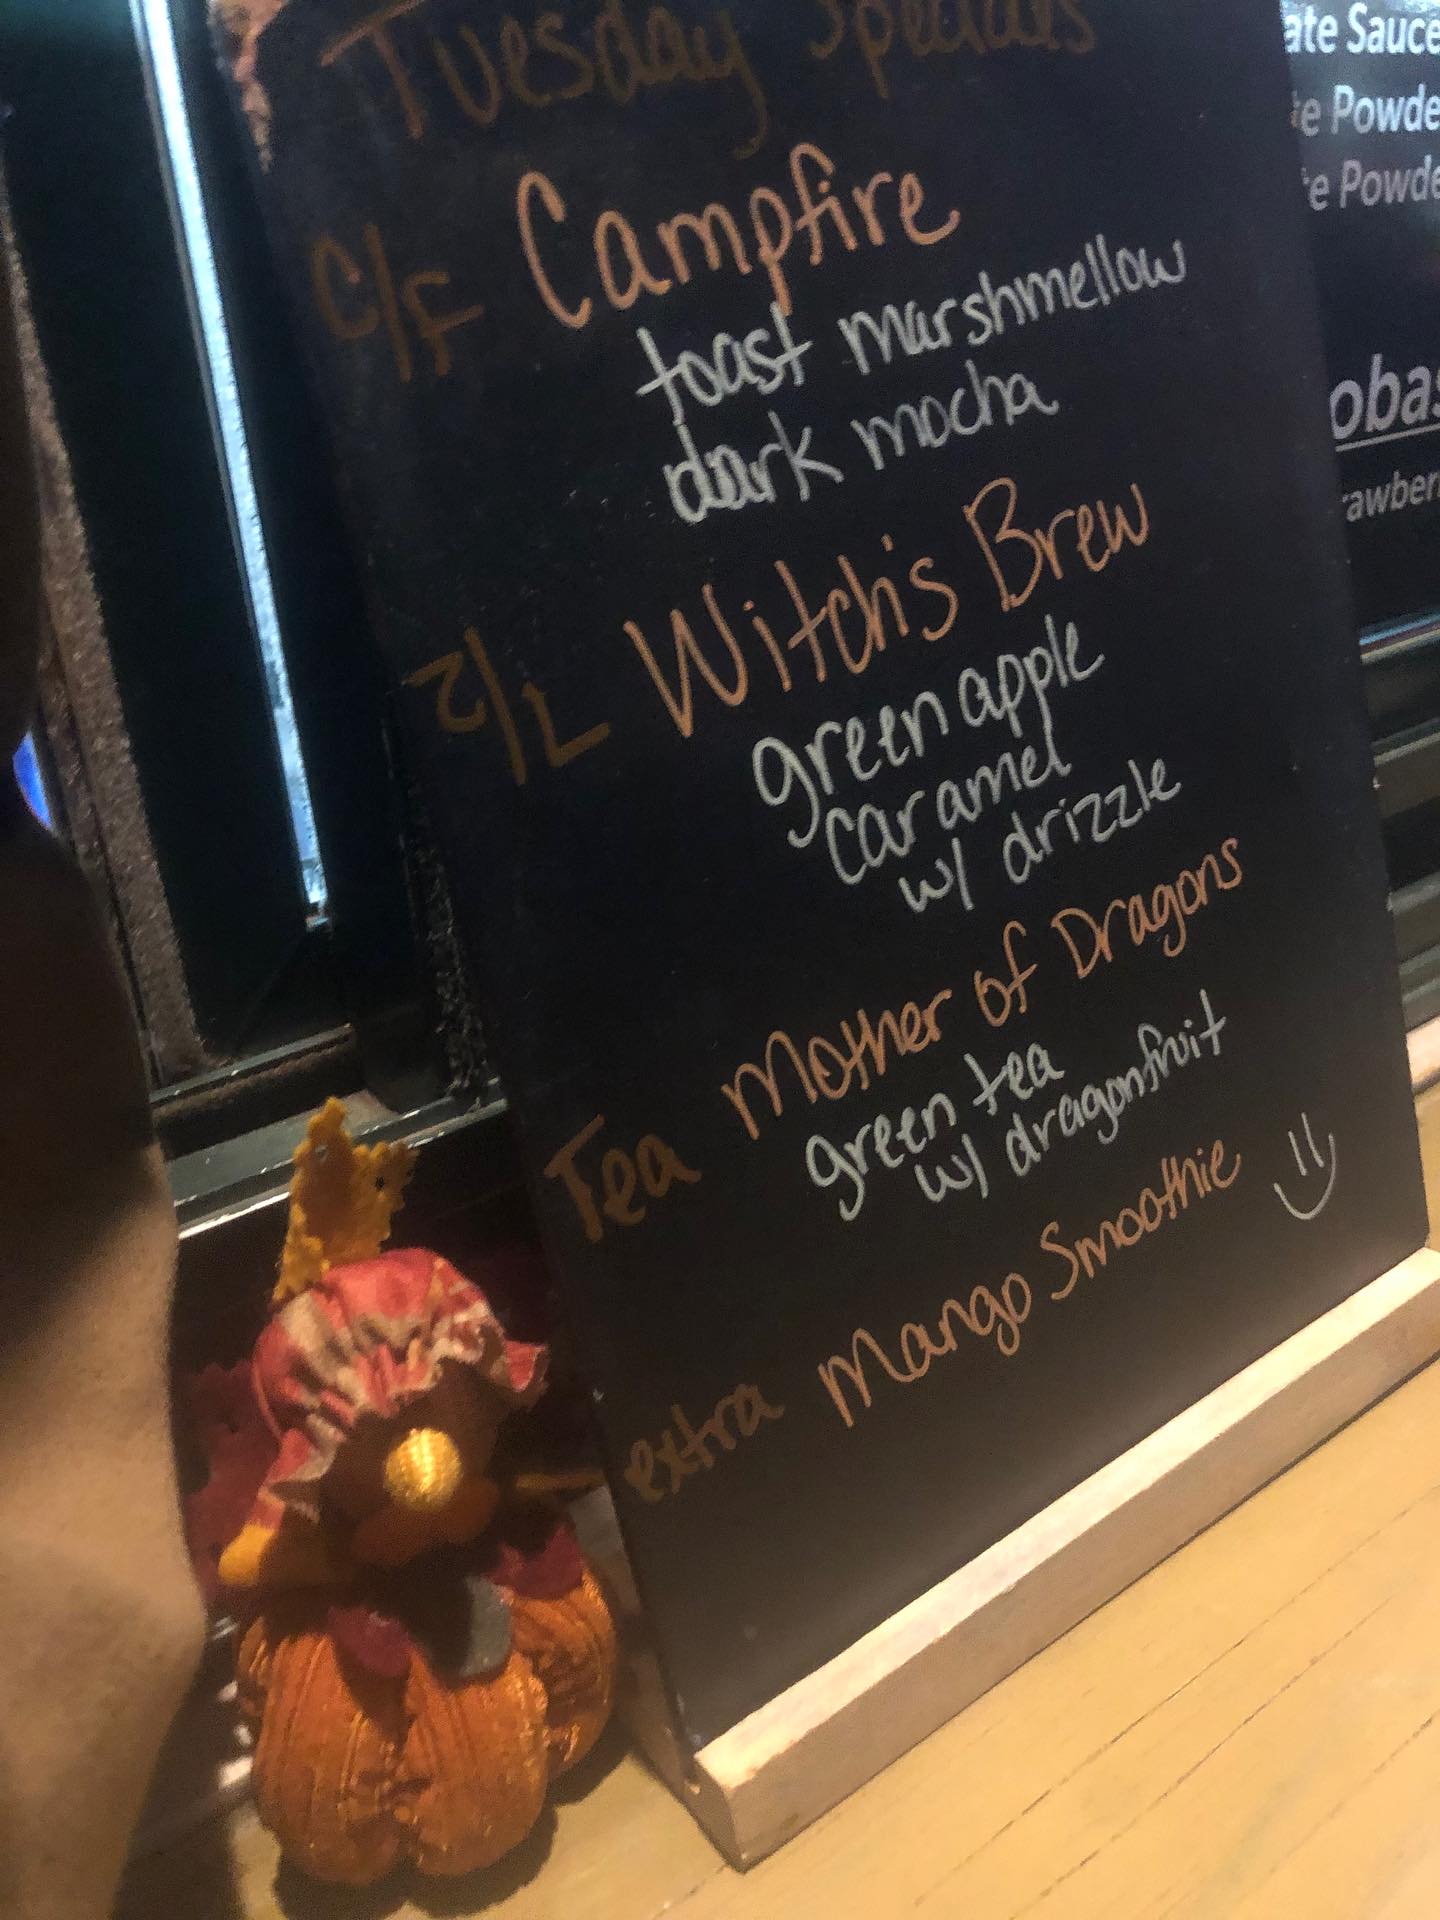 Tuesday Specials
C/F Campfire
toast marshmellow
dark mocha
Z/L Witch's Brew
green apple
caramel
w/ drizzle
Tea Mother of Dragons
green tea
w/ dragonfruit
extra Mango Smoothie
ate Sauce
te Powde
te Powde
obas
rawber